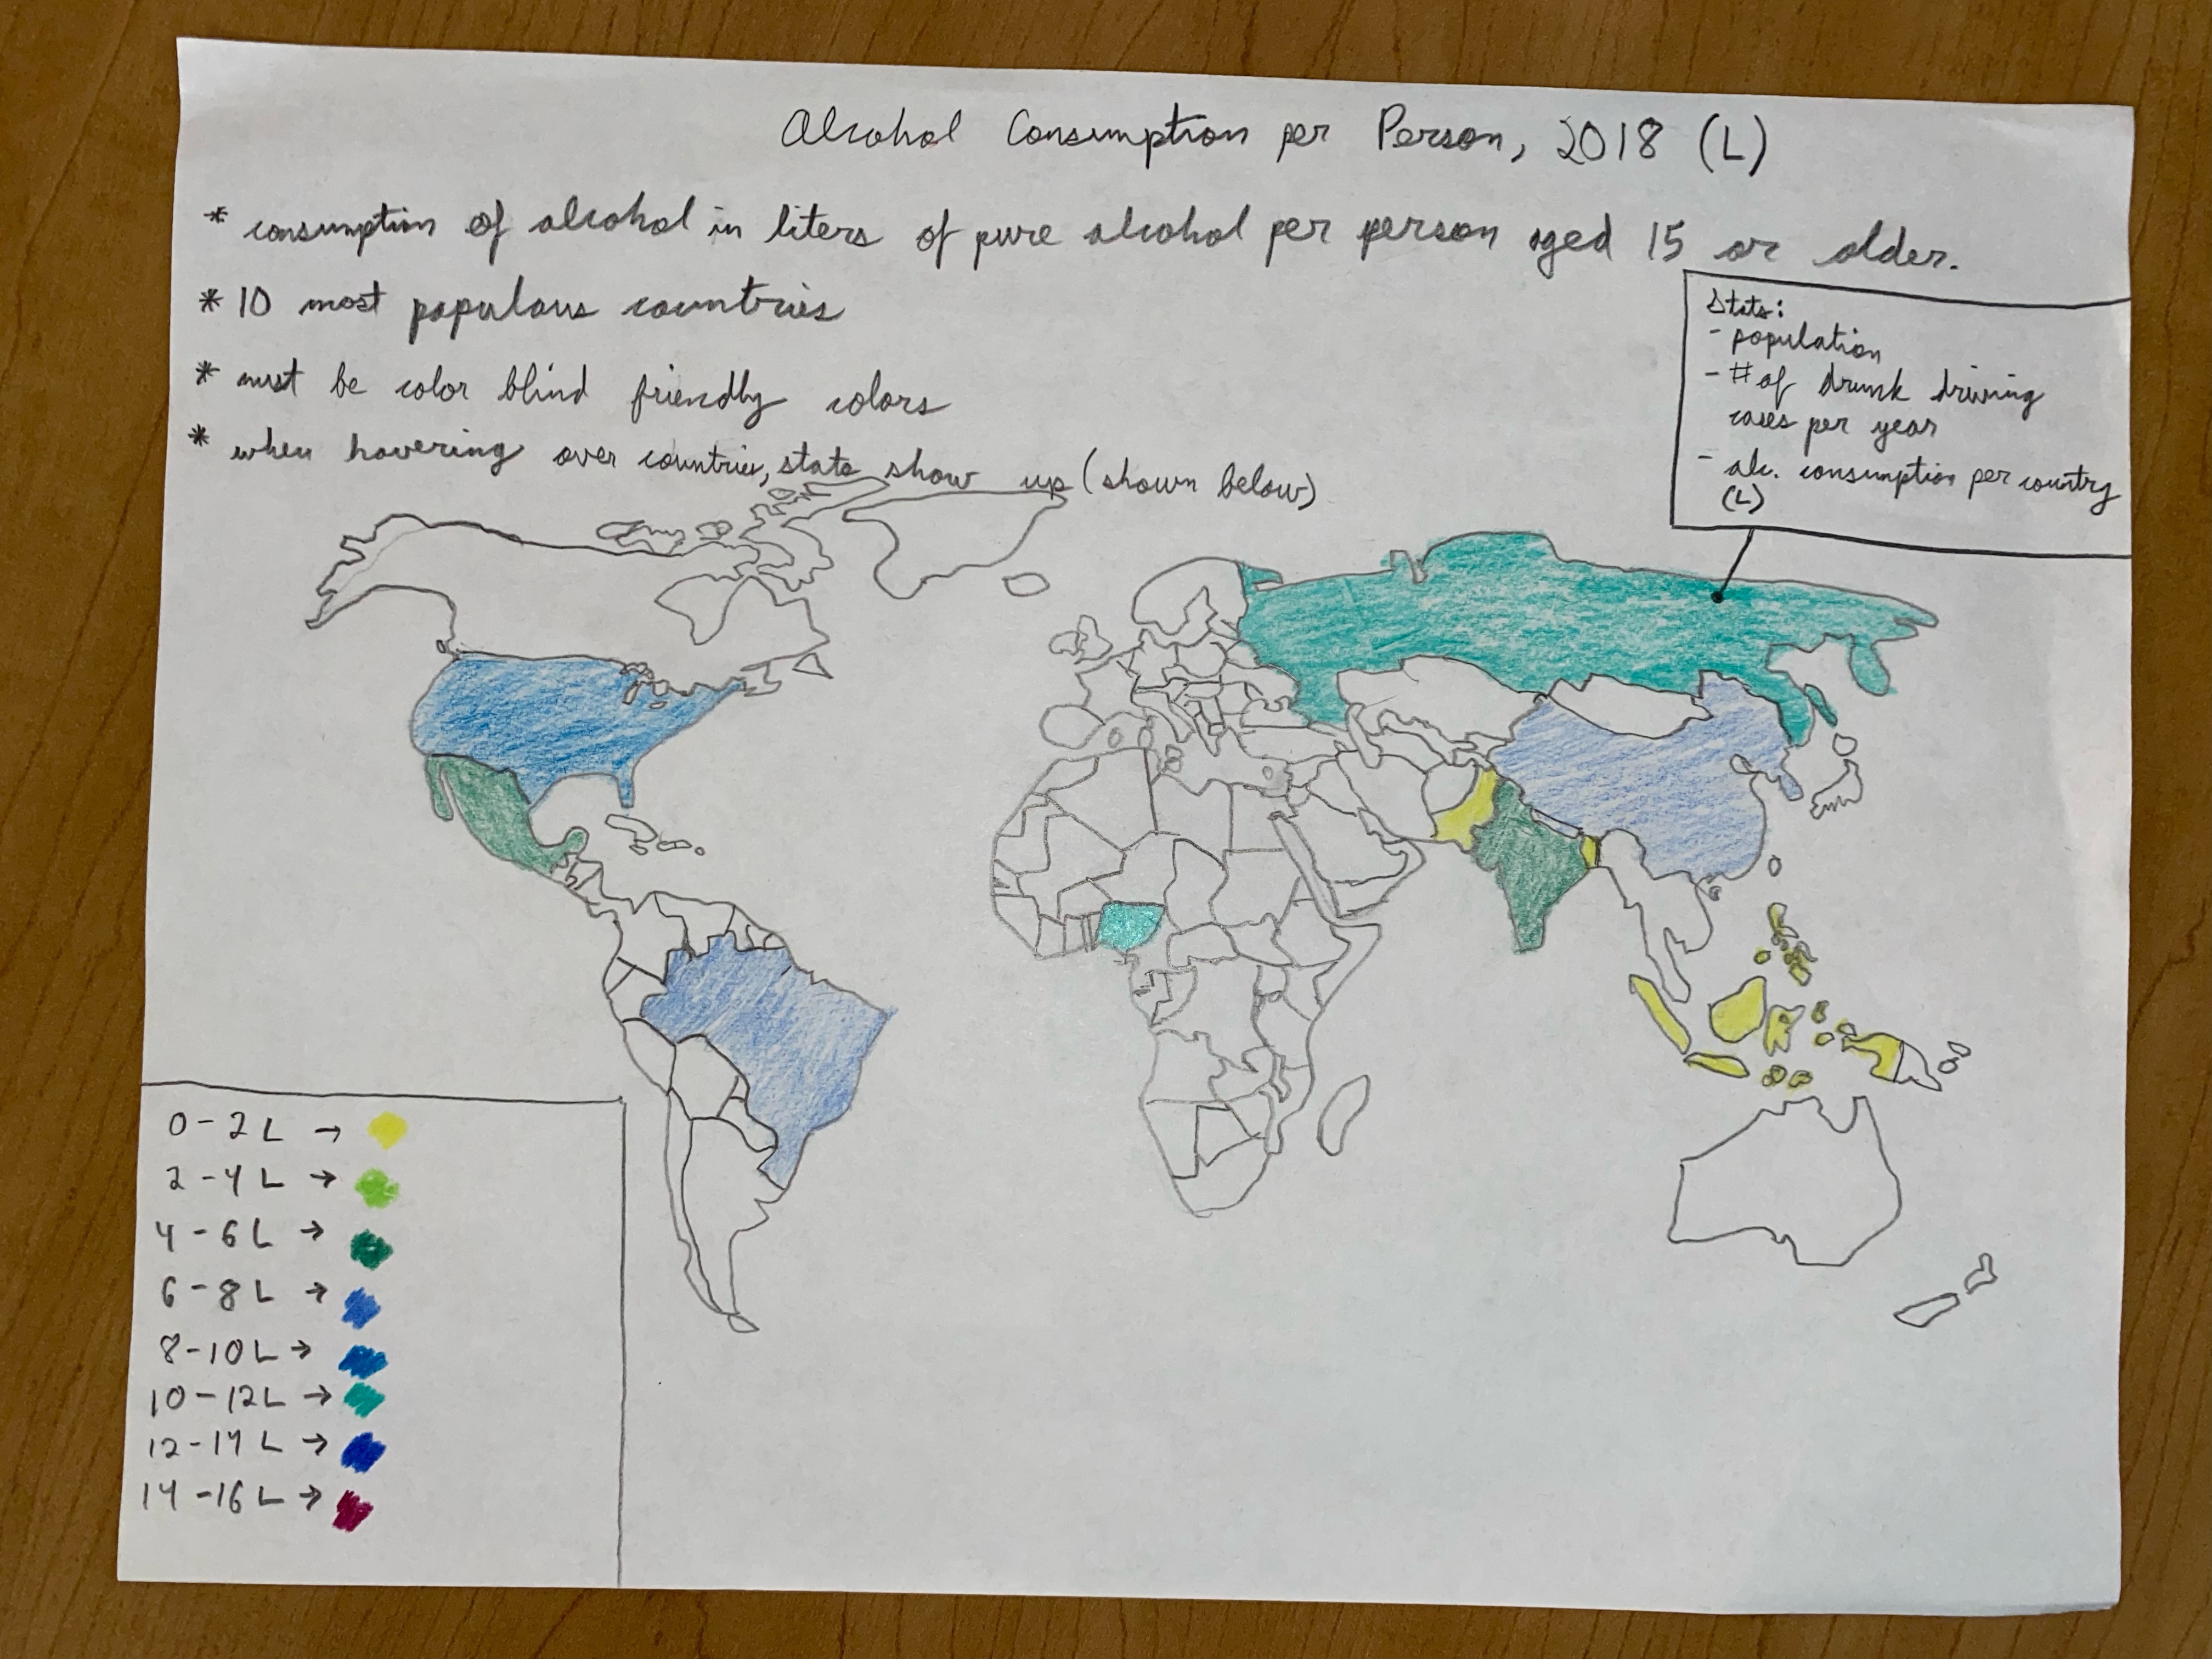 Alcohol Consumption per Person, 2018 (L)
* consumption of alcohol in liters of pure alcohol per person aged 15 or older.
* 10 most populous countries
* must be color blind friendly colors
* when hovering over countries, stats show up (shown below)
Stats:
- population
- # of drunk driving
cases per year
- alc. consumption per country
(L)
0-2L →
2-4L →
4-6L →
6-8L →
8-10L →
10-12L →
12-14L →
14-16L →